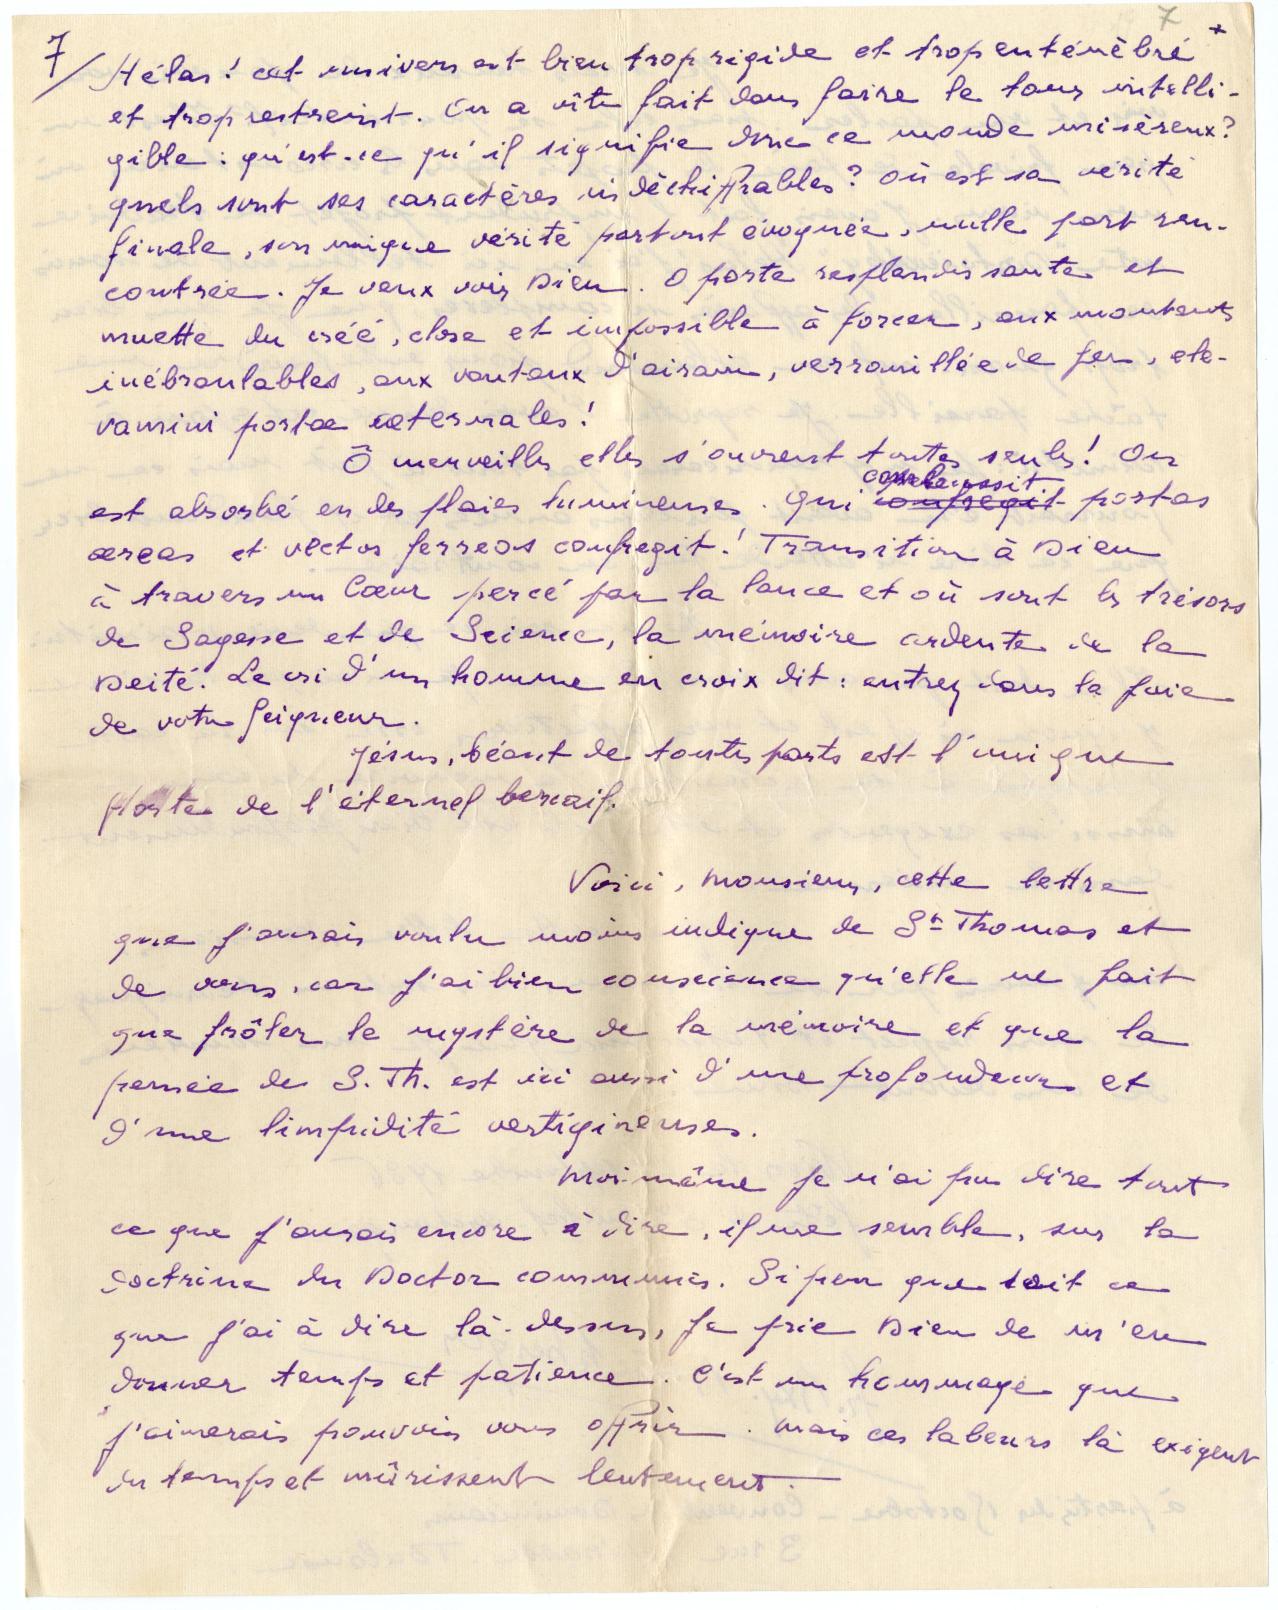 7
7 +
Hélas! cet univers est bien trop rigide et trop enténébré
et trop restreint. On a vite fait dans faire le tour intelli-
gible : qu'est-ce qu'il signifie donc ce monde miséreux?
quels sont ses caractères indéchiffrables? où est sa vérité
finale, son unique vérité partout évoquée, nulle part ren-
contrée. Je veux voir Dieu. O porte resplendissante et
muette du créé, close et impossible à forcer, aux montants
inébranlables, aux vantaux d'airain, verrouillée de fer, ele-
vamini portae aeternales!
Ô merveille elles s'ouvrent toutes seules! On
est absorbé en des plaies lumineuses. Qui confregit portas
aereas et vectes ferreos confregit! Transition à Dieu
à travers un Cœur percé par la lance et où sont les trésors
de Sagesse et de Science, la mémoire ardente de la
Deité. Le cri d'un homme en croix dit : entrez dans la joie
de votre Seigneur.
Jésus, béant de toutes parts est l'unique
Porte de l'éternel bercail.
Voici, Monsieur, cette lettre
que j'aurais voulu moins indigne de St Thomas et
de vous, car j'ai bien conscience qu'elle ne fait
que frôler le mystère de la mémoire et que la
pensée de S. Th. est ici aussi d'une profondeur et
d'une limpidité vertigineuses.
Moi-même je n'ai pu dire tout
ce que j'aurais encore à dire, il me semble, sur la
doctrine du Doctor communis. Si peu que soit ce
que j'ai à dire là-dessus, je prie Dieu de m'en
donner temps et patience. C'est un hommage que
j'aimerais pouvoir vous offrir. Mais ces labeurs là exigent
du temps et mûrissent lentement.